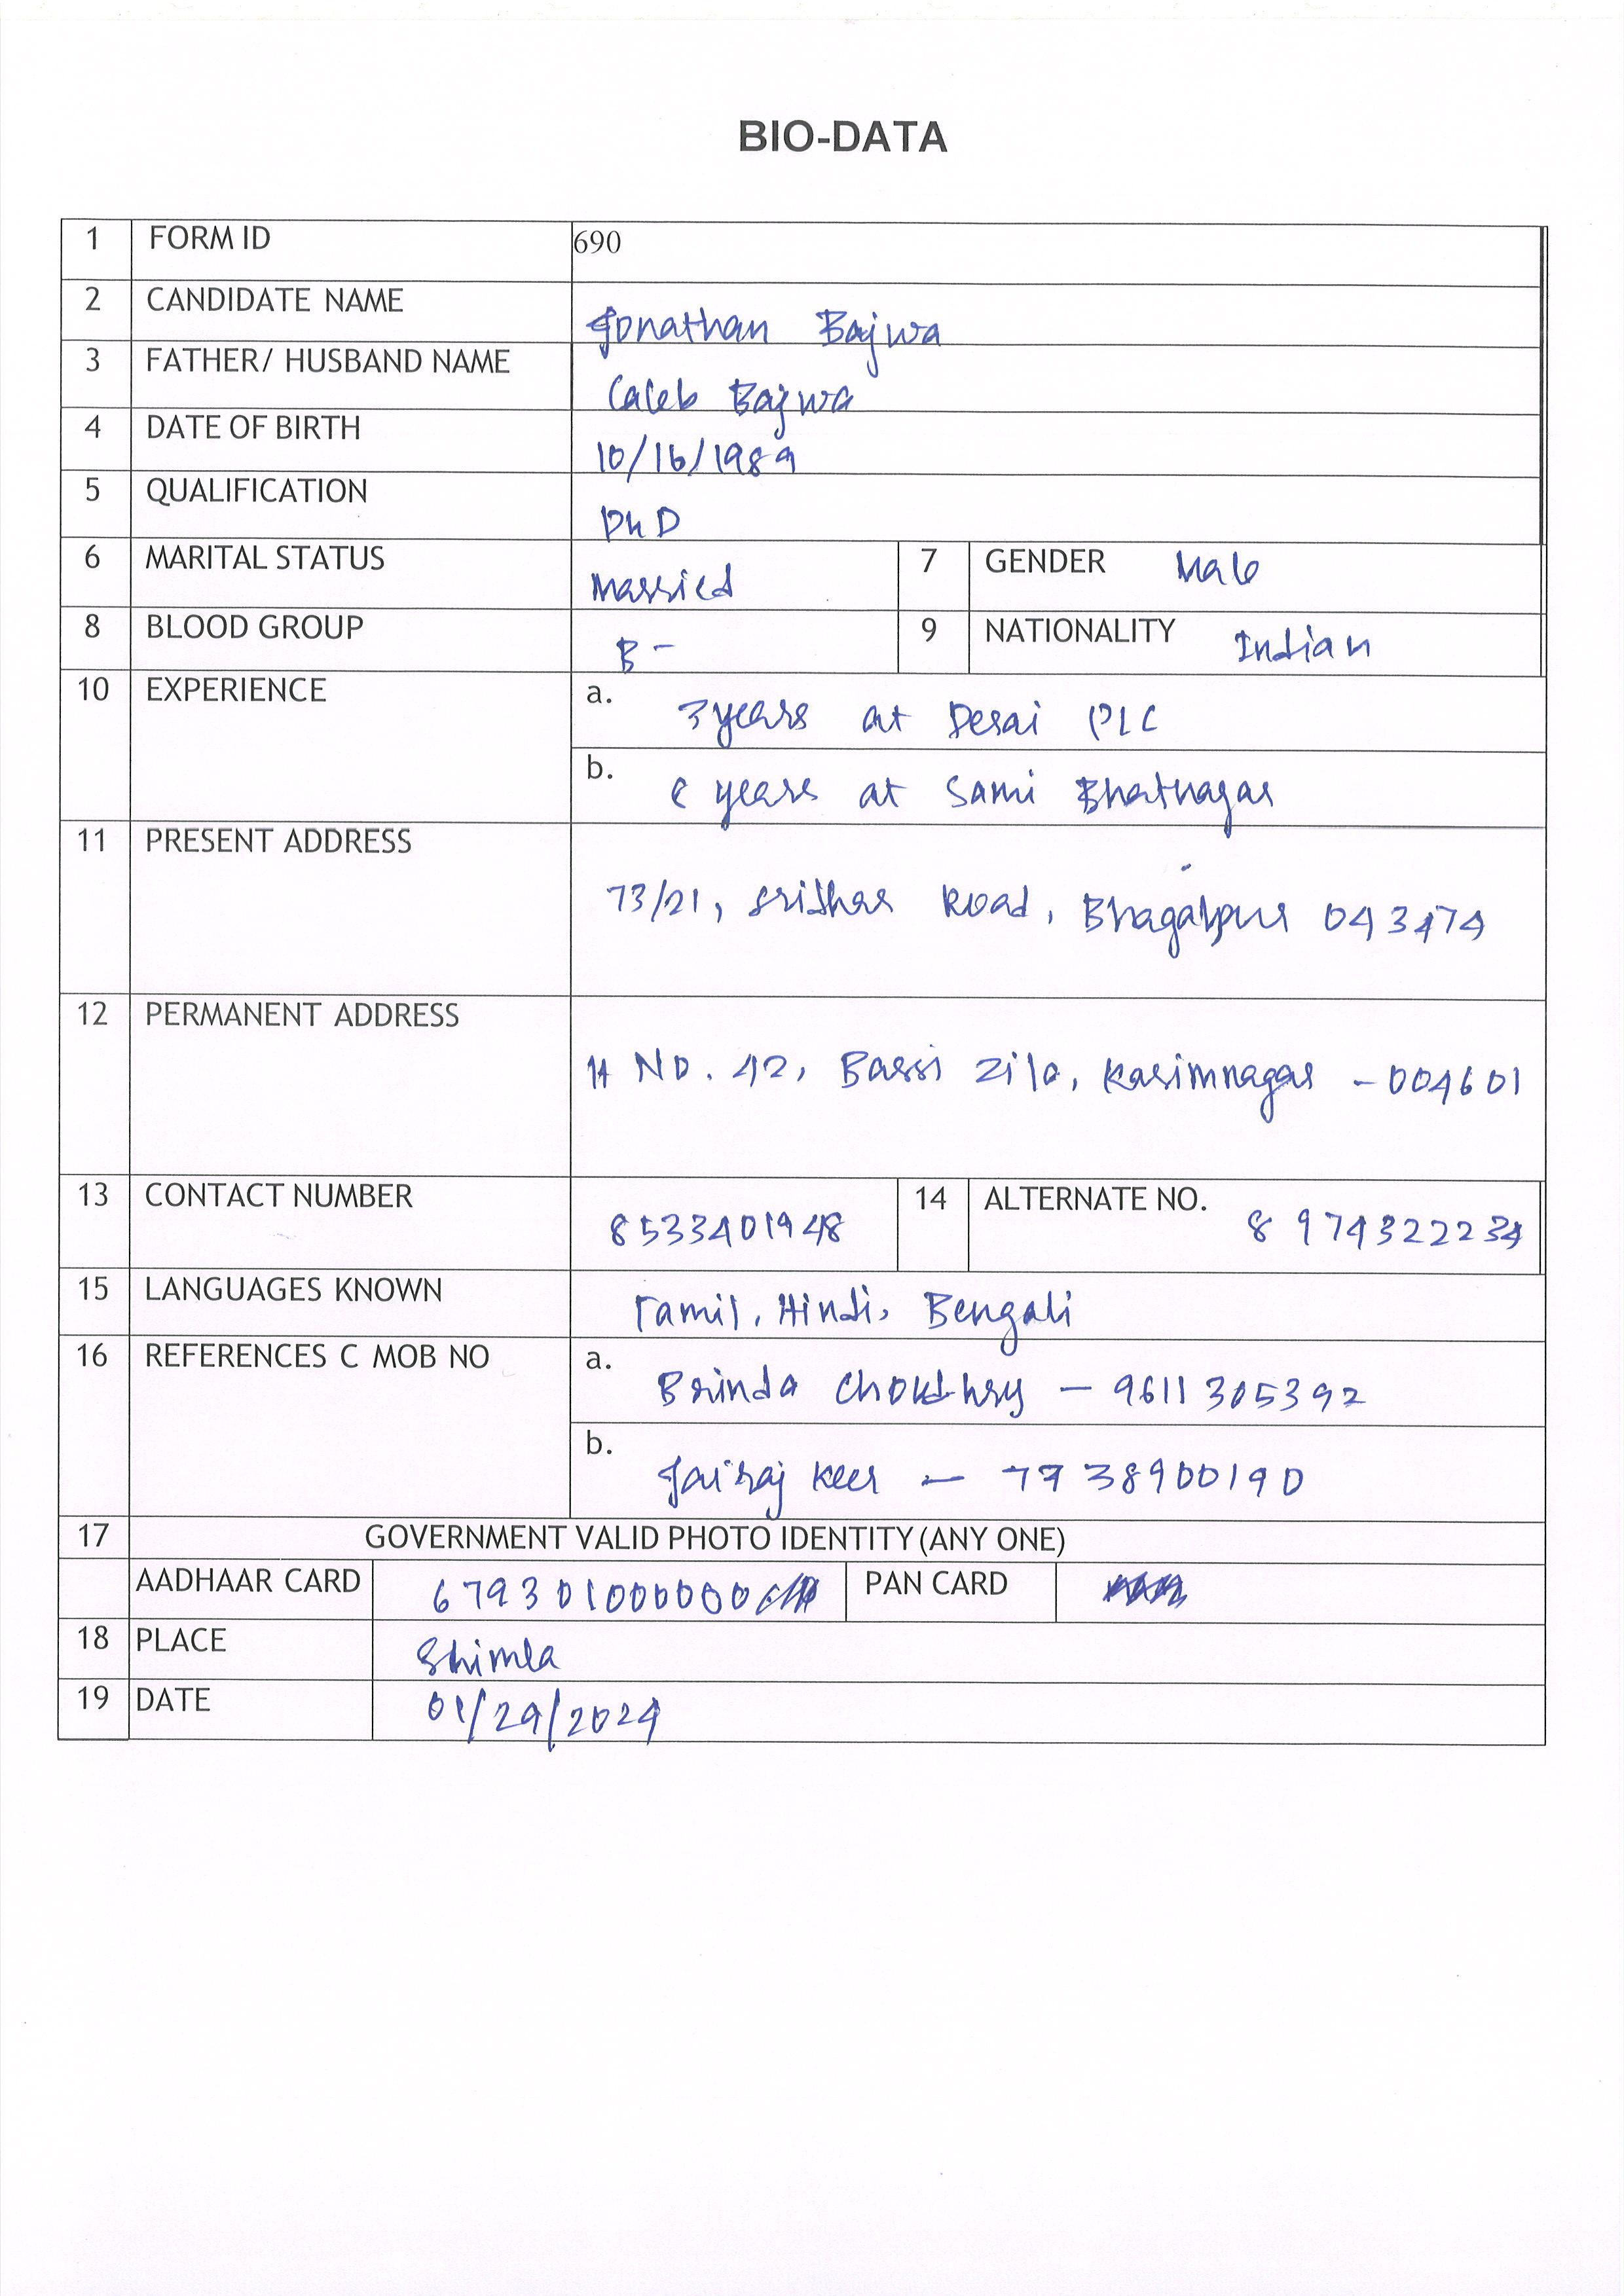 BIO-DATA
1 FORM ID 690
2 CANDIDATE NAME Jonathan Bajwa
3 FATHER/ HUSBAND NAME Caleb Bajwa
4 DATE OF BIRTH 10/16/1989
5 QUALIFICATION PhD
6 MARITAL STATUS Married 7 GENDER Male
8 BLOOD GROUP B- 9 NATIONALITY Indian
10 EXPERIENCE a. 3 years at Desai PLC
b. years at Sami Bhatnagar
11 PRESENT ADDRESS 73/21, Sridhar Road, Bhagalpur 043474
12 PERMANENT ADDRESS H No. 42, Barri Zila, Karimnagar - 004601
13 CONTACT NUMBER 8533401948 14 ALTERNATE NO. 8974322234
15 LANGUAGES KNOWN Tamil, Hindi, Bengali
16 REFERENCES C MOB NO a. Brinda Choudhry - 9611305392
b. Jairaj Keer - 7738900190
17 GOVERNMENT VALID PHOTO IDENTITY (ANY ONE)
AADHAAR CARD 679301000000 PAN CARD
18 PLACE Shimla
19 DATE 01/29/2024